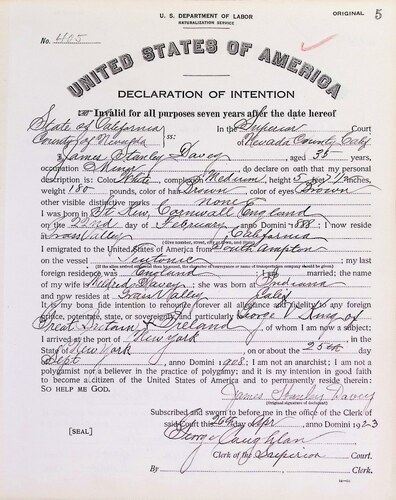 U. S. DEPARTMENT OF LABOR
NATURALIZATION SERVICE
ORIGINAL 5
No. 405
UNITED STATES OF AMERICA
DECLARATION OF INTENTION
Invalid for all purposes seven years after the date hereof
State of California In the Superior Court
County of Nevada ss: of Nevada County, Calif
I, James Stanley Davey, aged 35 years,
occupation Miner, do declare on oath that my personal
description is: Color White, complexion Medium, height 5 feet inches,
weight 180 pounds, color of hair Brown, color of eyes Brown
other visible distinctive marks None
I was born in St. Kew, Cornwall England
on the 22nd day of February, anno Domini 1888; I now reside
at Grass Valley, California
(Give number, street, city or town, and State.)
I emigrated to the United States of America from Southampton
on the vessel Teutonic; my last
(If the alien arrived otherwise than by vessel, the character of conveyance or name of transportation company should be given.)
foreign residence was England; I am married; the name
of my wife is Mildred Davey; she was born at Indiana
and now resides at Grass Valley, Calif.
It is my bona fide intention to renounce forever all allegiance and fidelity to any foreign
prince, potentate, state, or sovereignty, and particularly to George V King of
Great Britain & Ireland, of whom I am now a subject;
I arrived at the port of New York, in the
State of New York, on or about the 25th day
of Sept, anno Domini 1908; I am not an anarchist; I am not a
polygamist nor a believer in the practice of polygamy; and it is my intention in good faith
to become a citizen of the United States of America and to permanently reside therein:
SO HELP ME GOD.
James Stanley Davey
(Original signature of declarant.)
Subscribed and sworn to before me in the office of the Clerk of
said Court this 26th day of Apr, anno Domini 1923
[SEAL] George Coughlan
Clerk of the Superior Court.
By , Clerk.